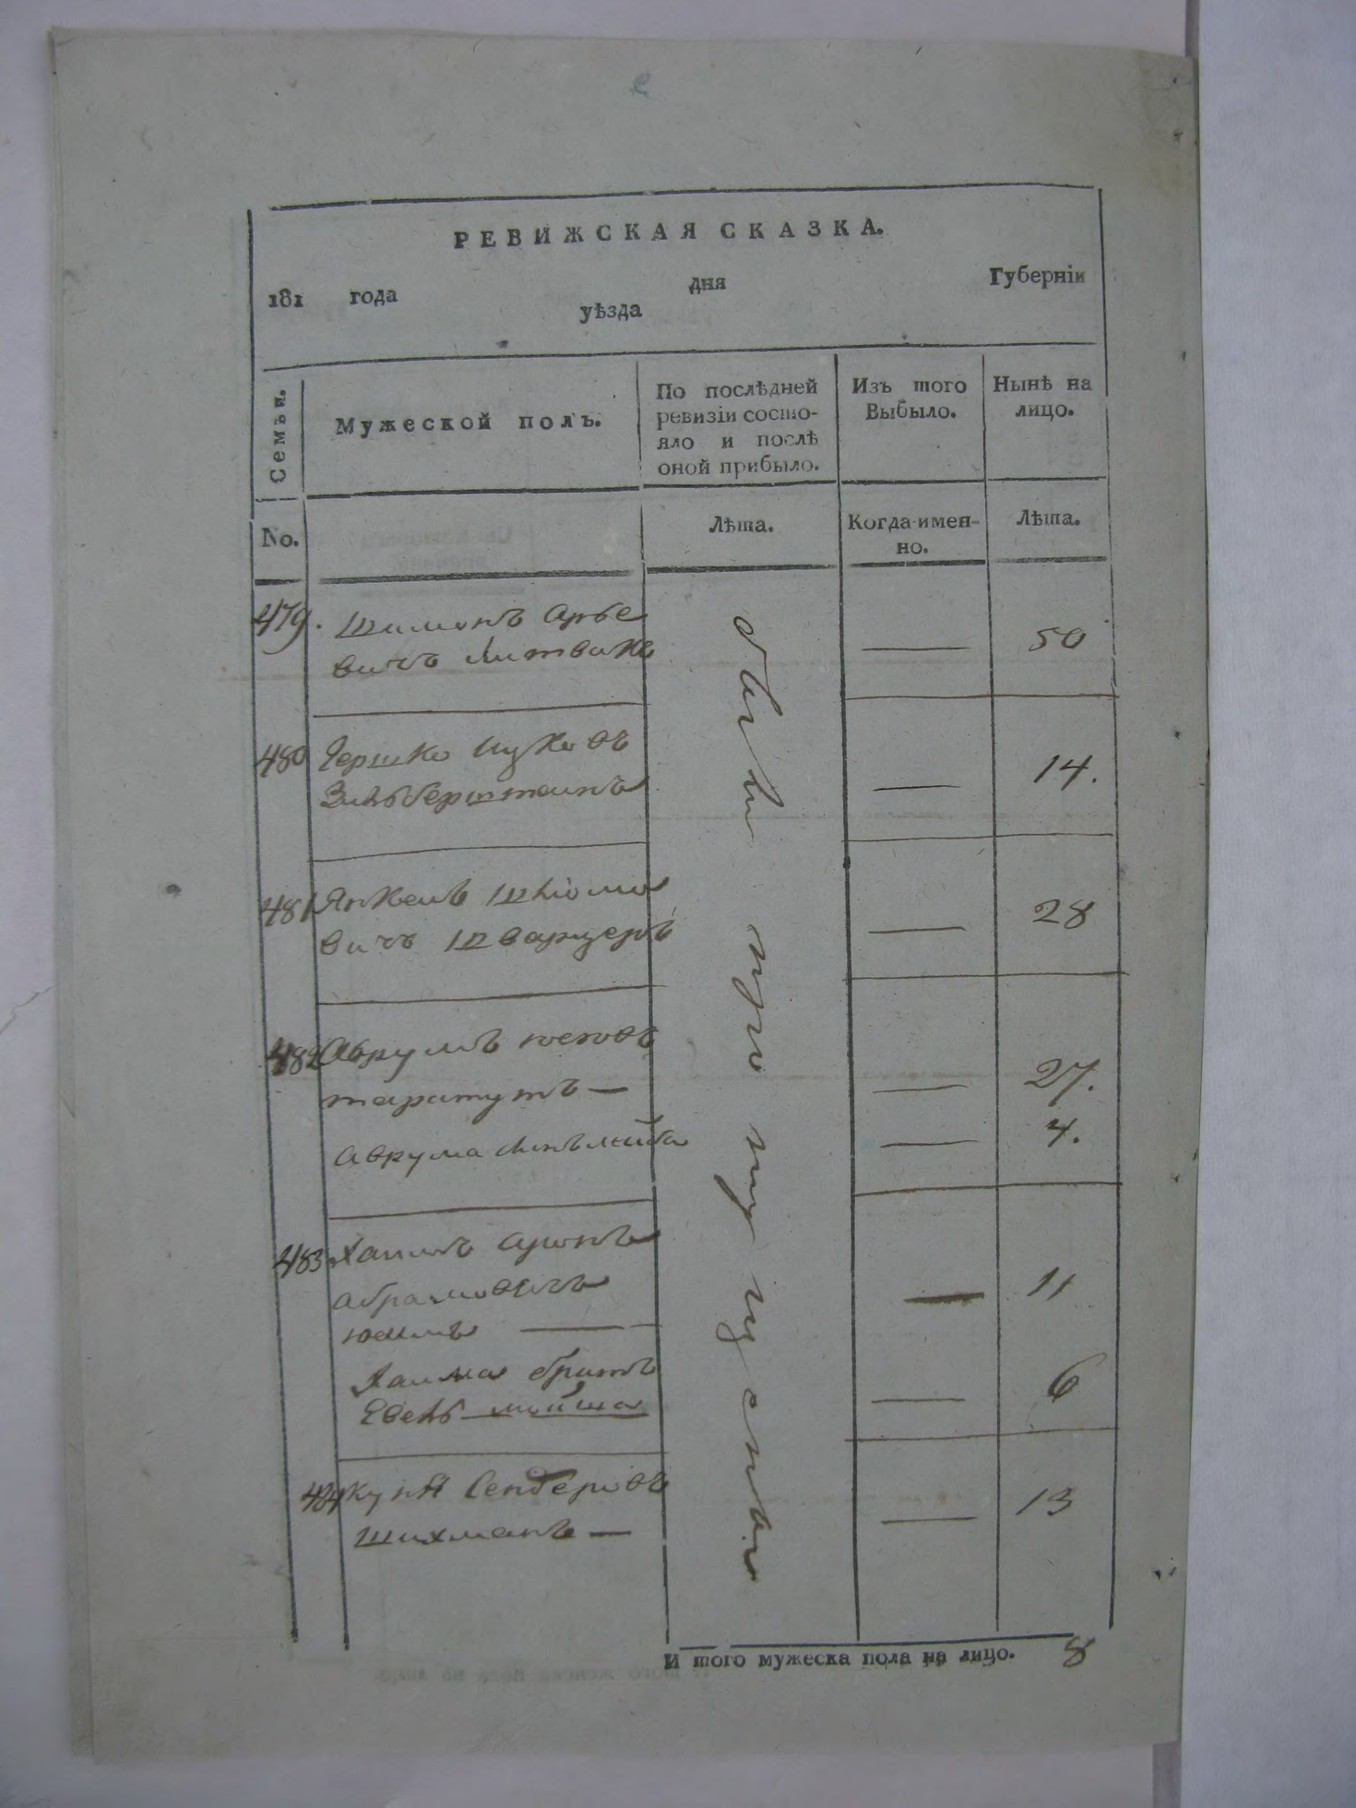 РЕВИЖСКАЯ СКАЗКА.
181 года дня Губерніи
уѣзда
Семьи.
Мужеской полъ.
По послѣдней ревизіи состо-
яло и послѣ
оной прибыло.
Изъ того
Выбыло.
Нынѣ на
лицо.
No.
Лѣта.
Когда имен-
но.
Лѣта.
479. Шимонъ Арье
вичъ Литвакъ — 50
480 Гершко Ицковъ
Зильберштеинъ — 14.
481 Янкель Шліомо
вичъ Шварцеръ — 28
482 Аврумъ Юсковъ
таратутъ — — 27.
Аврума сынъ Лейба — 4.
483 Хаимъ Аронъ
Абрамовичъ — 11
Хаима братъ
Евель мойша — 6
484 Сендеровъ
Шихманъ — — 13
И того мужеска пола на лицо. 8